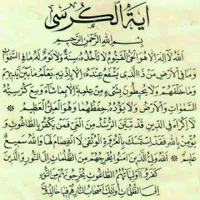 آية الكرسي
بسم الله الرحمن الرحيم
الله لا إله إلا هو الحي القيوم لا تأخذه سنة ولا نوم له ما في السموات
وما في الأرض من ذا الذي يشفع عنده إلا بإذنه يعلم ما بين أيديهم
وما خلفهم ولا يحيطون بشيء من علمه إلا بما شاء وسع كرسيه
السموات والأرض ولا يؤده حفظهما وهو العلي العظيم
لا إكراه في الدين قد تبين الرشد من الغي فمن يكفر بالطاغوت
ويؤمن بالله فقد استمسك بالعروة الوثقى لا انفصام لها والله سميع
عليم الله ولي الذين آمنوا يخرجهم من الظلمات إلى النور والذين
كفروا أولياؤهم الطاغوت يخرجونهم من النور
إلى الظلمات أولئك أصحاب النار هم فيها خالدون